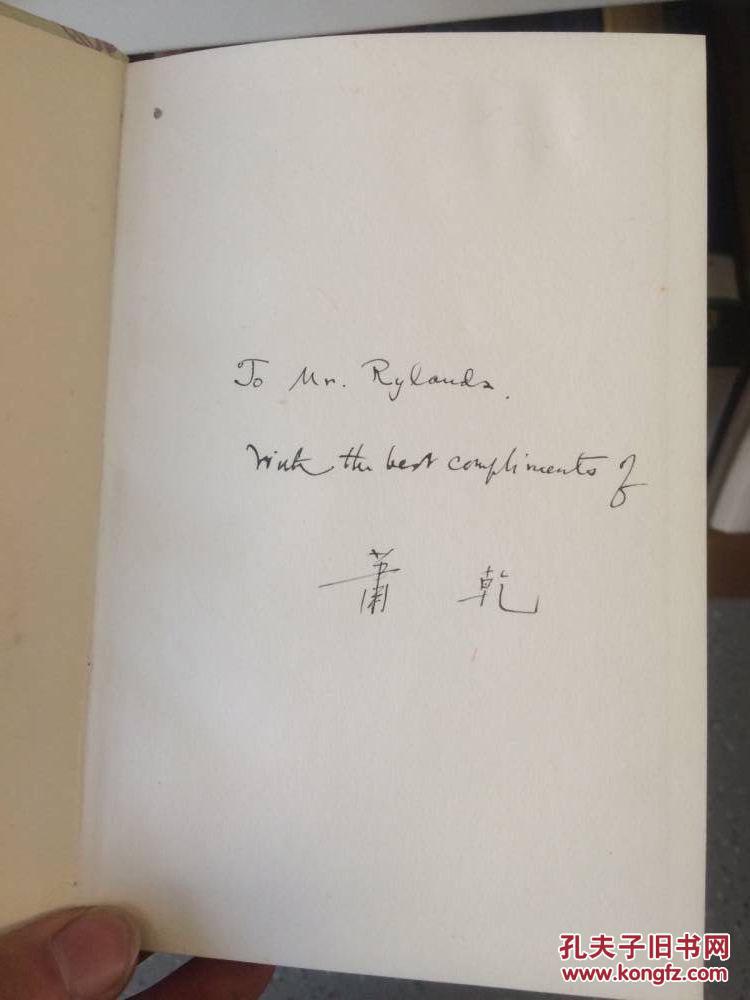 To Mr. Rylands.
With the best compliments of
萧 乾
孔夫子旧书网
www.kongfz.com